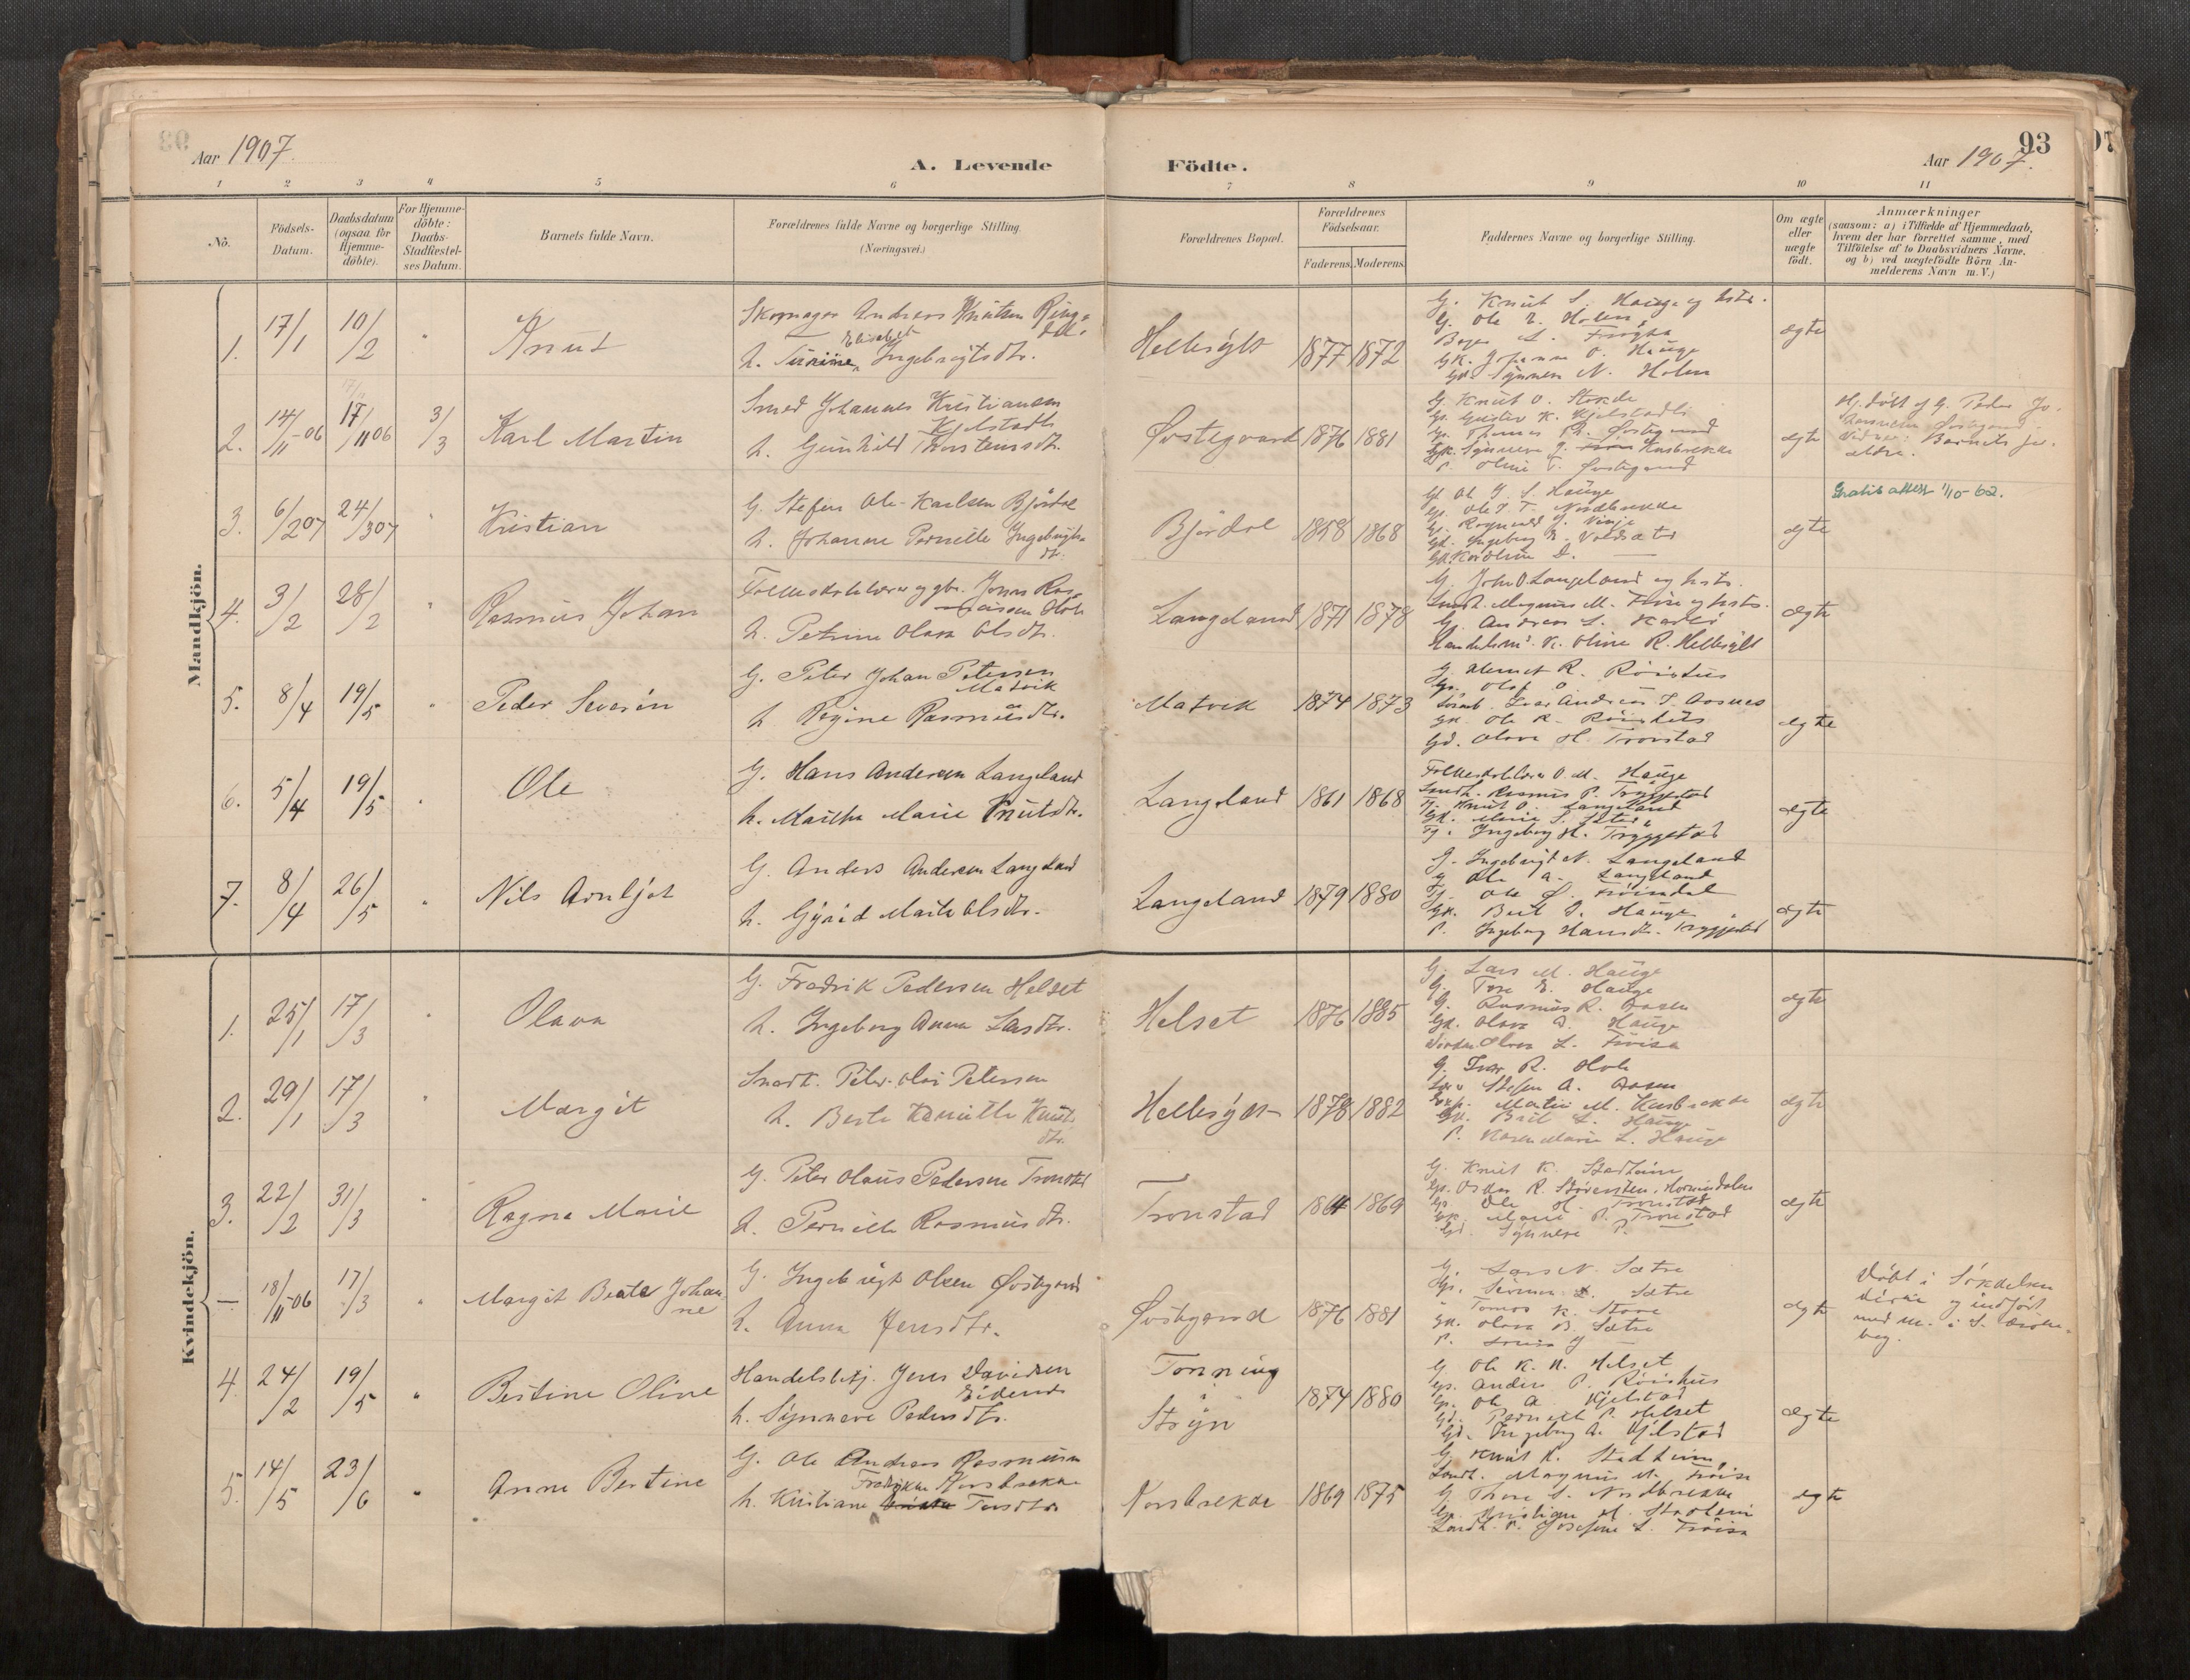 93
Aar 1907.
A. Levende Födte.
Aar 1907.
1 2 3 4 5 6 7 8 9 10 11
No.
Födsels-Datum.
Daabsdatum (ogsaa for Hjemme-döbte).
For Hjemme-döbte: Daabs-Stadfæstel-ses Datum.
Barnets fulde Navn.
Forældrenes fulde Navne og borgerlige Stilling.
(Næringsvei.)
Forældrenes Bopæl.
Forældrenes Födselsaar.
Faderens. Moderens.
Faddernes Navne og borgerlige Stilling.
Om ægte eller uægte födt.
Anmærkninger
(saasom: a) i Tilfælde af Hjemmedaab,
hvem der har forrettet samme, med
Tilföielse af to Daabsvidners Navne,
og b) ved uægtefödte Börn An-
melderens Navn m. V.)
Mandkjön.
1. 17/1 10/2 " Knut
Skomager Andreas Knutsen
h. Elisabet Ingebrigtsdtr.
Hellesylt 1877 1872
G. Knut S. Hauge og hstr.
G. Ole E. Holen
Gk. Johanne O. Hauge
Gd. Synneva N. Holen
ægte
2. 14/11-06 17/11 06 3/3 Karl Martin
Smed Johannes Kristiansen
Kjelstadli
h. Gunhild Thorstensdtr.
Østegaard 1876 1881
G. Knut O. Stokde
Gs. Gustav K. Kjelstadli
Gs. Thomas Østegaard
Gk. Synneva J. Korsbrekke
P. Oline T. Østegaard
ægte
Hj.döbt af G. Peder Jo-
hannessen Østegaard
Vidner: Barnets for-
ældre.
3. 6/2 07 24/3 07 " Kristian
G. Stefen Ole Karlsen Björdal
h. Johanne Pernille Ingebrigts
dtr.
Björdal 1858 1868
G. Ole J. S. Hauge
Gs. Ole T. Nordbrekke
Gs. Ragnvald J. Vinje
Gd. Ingeborg E. Voldsæter
Gd. Karoline D. —
ægte
Gratis attest 1/10-62.
4. 3/2 28/2 " Rasmus Johan
Folkeskolelærer og gbr. Jonas Ras-
mussen Hole
h. Petrine Olava Olsdtr.
Langeland 1871 1878
G. John O. Langeland og hstr.
Landh. Magnus M. Fröisa og hstr.
G. Andreas L.
Handelsm. k. Oline R. Hellesylt
ægte
5. 8/4 19/5 " Peder Severin
G. Peter Johan Petersen
Matvik
h. Regine Rasmusdtr.
Matvik 1874 1873
G. R. Röishus
Gs. Olaf O.
Andreas J. Aasnes
Gk. Ole K. Röishus
Gd. Olava H. Tronstad
ægte
6. 5/4 19/5 " Ole
G. Hans Andersen Langeland
h. Martha Marie Knutsdtr.
Langeland 1861 1868
Folkeskolelærer O. M. Hauge
Landh. Rasmus P. Tryggestad
Tj. Knut O. Langeland
Gk. Marie S. Sætre
Tj. Ingeborg H. Tryggestad
ægte
7. 8/4 26/5 " Nils Arnljot
G. Anders Andersen Langeland
h. Gjurid Marta Olsdtr.
Langeland 1879 1880
G. Ingebrigt N. Langeland
G. Ole A. Langeland
Tj. Ole Ø.
Gk. Berit S. Hauge
P. Ingeborg Hansdtr. Tryggestad
ægte
Kvindekjön.
1. 25/1 17/3 " Olava
G. Fredrik Pedersen Helset
h. Ingeborg Anna Larsdtr.
Helset 1876 1885
G. Lars M. Hauge
G. Tore E. Hauge
G. Rasmus R. Aasen
Gk. Olava A. Hauge
Olava L. Fröisa
ægte
2. 29/1 17/3 " Margit
Snedk. Peter Olai Petersen
h. Berte Kamille Knuts
dtr.
Hellesylt 1878 1882
G. Ivar R. Hole
Stefen A. Aasen
Martin M. Korsbrekke
Gk. Berit L. Hauge
P. Karen Marie L. Hauge
ægte
3. 22/2 31/3 " Ragna Marie
G. Peter Olaus Pedersen Tronstad
h. Pernille Rasmusdtr.
Tronstad 1864 1869
G. Knut K. Stadheim
Gs. Oskar R. Hornindalen
Gs. Ole H. Tronstad
Gk. Marie P. Tronstad
Gd. Synneve P. —
ægte
— 18/11-06 17/3 " Margit Beate Johan-
ne
G. Ingebrigt Olsen Østegaard
h. Anna Jensdtr.
Østegaard 1876 1881
G. Lars N. Sætre
Gs. L. Sætre
" Tomas K. Stove
Gk. Olava B. Sætre
P. Louisa J
ægte
Döbt i Sökelven
kirke og indfört
med nr. i S. kirke-
bog.
4. 24/2 19/5 " Bertine Oline
Handelsbetj. Jens Davidsen
Eidene
h. Synneve Pedersdtr.
Tonning
i
Stryn
1874 1880
G. Ole K. N. Helset
Gs. Anders P. Röishus
Gs. Ole A. Kjelstad
Gd. Pernille P. Helset
Gd. Ingeborg A. Kjelstad
ægte
5. 14/5 23/6 " Anne Bertine
G. Ole Andreas Rasmussen
Korsbrekke
h. Kristiane Fredrikke
Korsbrekke 1869 1875
G. Knut K. Stadheim
Landh. Magnus M. Fröisa
G. Thore S. Nordbrekke
Gk. Kristiane H. Stadheim
Landh. k. Josefine L. Fröisa
ægte